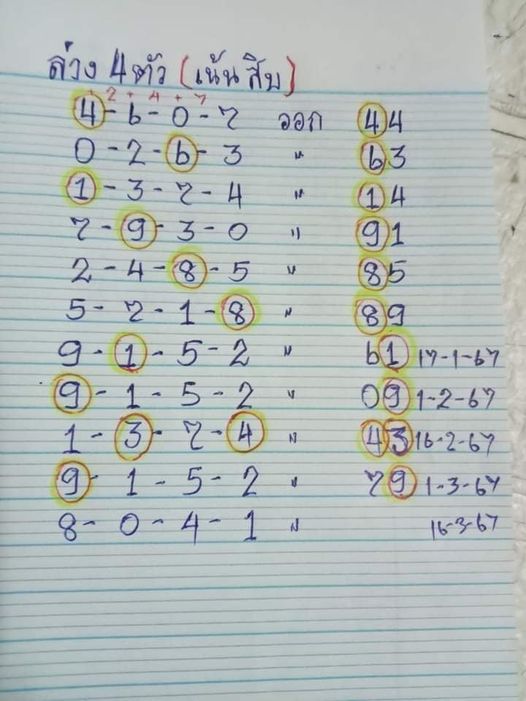 ล่าง 4 ตัว (เน้นสิบ)
+2 +4 +7
4-6-0-7 ออก 44
0-2-6-3 " 63
1-3-7-4 " 14
7-9-3-0 " 91
2-4-8-5 " 85
5-7-1-8 " 89
9-1-5-2 " 61 17-1-67
9-1-5-2 " 09 1-2-67
1-3-7-4 " 43 16-2-67
9-1-5-2 " 79 1-3-67
8-0-4-1 " 16-3-67